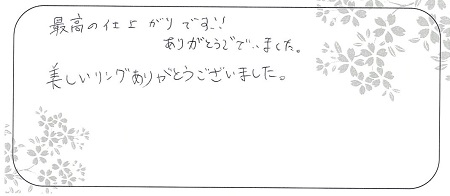 最高の仕上がりです!!
ありがとうございました。
美しいリングありがとうございました。